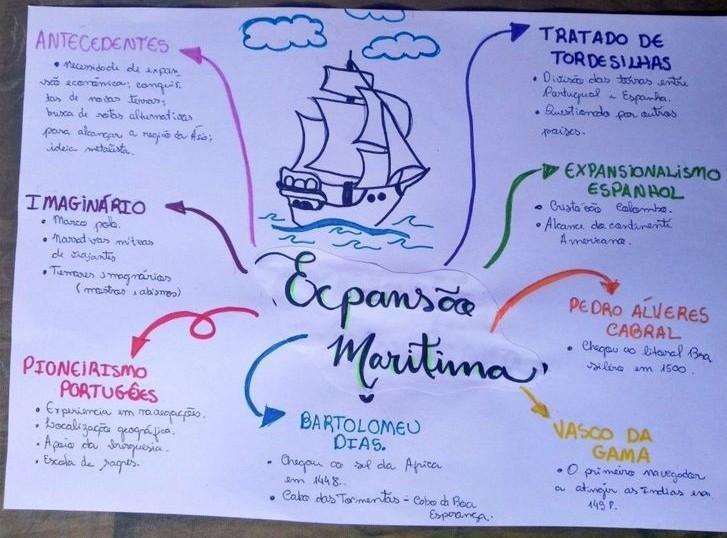 ANTECEDENTES
• Necessidade de expan
são econômica; conquis
tas de novas terras;
busca de rotas alternativas
para alcançar a região da Ásia;
ideia metalista.
TRATADO DE
TORDESILHAS
• Divisão das terras entre
Portugual e Espanha.
• Questionado por outros
países.
EXPANSIONALISMO
ESPANHOL
• Cristóvão Colombo.
• Alcance do continente
Americano.
IMAGINÁRIO
• Marco polo.
• Narrativas míticas
de viajantes
• Temores imaginários
(mostros e abismos)
Expansão
Maritima
PEDRO ÁLVERES
CABRAL
• Chegou ao litoral Bra
sileiro em 1500.
PIONEIRISMO
PORTUGÊES
• Experiencia em navegações.
• Localização geográfica.
• Apoio da burguesia.
• Escola de sagres.
BARTOLOMEU
DIAS.
• Chegou ao sul da Africa
em 1448.
• Cabo das Tormentas - Cabo da Boa
Esperança.
VASCO DA
GAMA
• O primeiro navegador
a atingir as Indias em